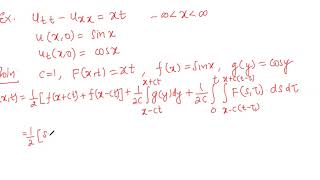 Ex: u_tt - u_xx = xt   -∞<x<∞
u(x,0) = sinx
u_t(x,0) = cosx
Soln c=1, F(x,t) = xt, f(x) = sinx, g(y) = cosy
(x,t) = 1/2 [f(x+ct) + f(x-ct)] + 1/2c ∫_{x-ct}^{x+ct} g(y)dy + 1/2c ∫_0^t ∫_{x-c(t-τ)}^{x+c(t-τ)} F(s,τ) ds dτ
= 1/2 [s